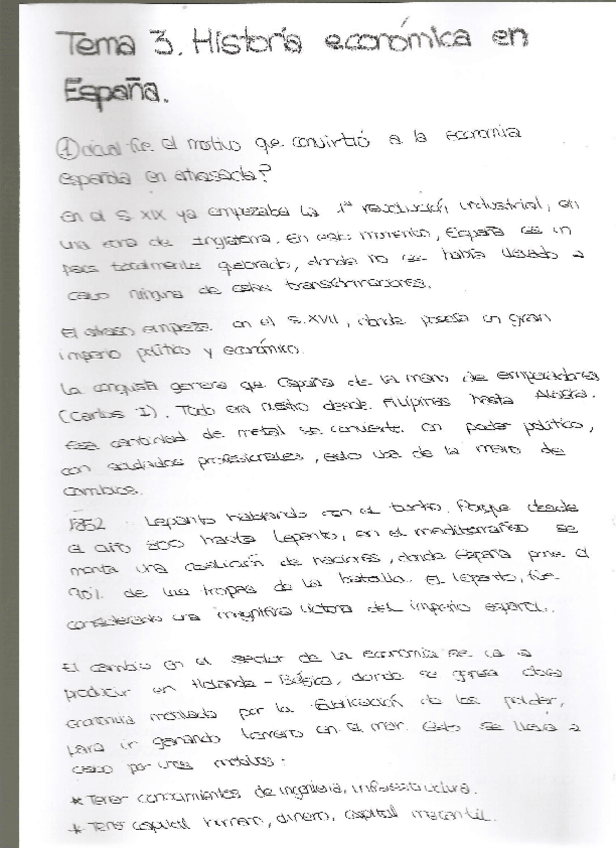 Tema 3. Historia económica en
España.
① ¿Cuál fue el motivo que convirtió a la economía
española en atrasada?
En el S. XIX ya empezaba la 1ª revolución industrial, en
una zona de Inglaterra. En este momento, España es un
país totalmente quebrado, donde no se había llevado a
cabo ninguna de estas transformaciones.
El atraso empieza en el S. XVII, donde poseía un gran
imperio político y económico.
La conquista genera que España de la mano de emperadores
(Carlos I). Todo era nuestro desde Filipinas hasta
Esa cantidad de metal se convierte en poder político,
con soldados profesionales, esto va de la mano de
cambios.
1852 Lepanto hablando con el turco. Porque desde
el año 800 hasta Lepanto, en el mediterráneo se
monta una coalición de naciones, donde España pone el
90% de las tropas de la batalla. El Lepanto, fue
considerado una magnífica victoria del imperio español.
El cambio en el sector de la economía se va a
producir en Holanda - Bélgica, donde se
economía por la fabricación de los polder,
para ir ganando terreno en el mar. Esto se lleva a
cabo por unos motivos:
* Tener conocimientos de ingeniería, infraestructura.
* Tener capital humano, dinero, capital mercantil.